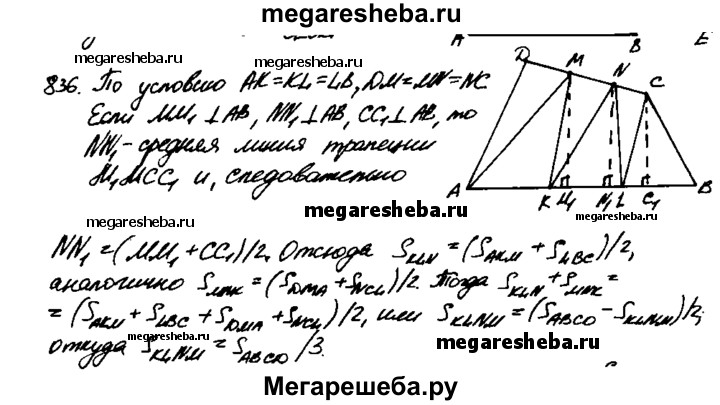 megaresheba.ru
A B E
megaresheba.ru megaresheba.ru
836. По условию AK=KL=LB, DM=MN=NC.
Если MM₁⊥AB, NN₁⊥AB, CC₁⊥AB, то
NN₁-средняя линия трапеции
M₁MCC₁ и, следовательно
D M N C
A K M₁ N₁ L C₁ B
megaresheba.ru
megaresheba.ru
megaresheba.ru
NN₁=(MM₁+CC₁)/2. Отсюда S_KLN=(S_AKM+S_LBC)/2,
аналогично S_MNK=(S_DMA+S_NCL)/2. Тогда S_KLN+S_MNK=
=(S_AKM+S_LBC+S_DMA+S_NCL)/2, или S_KLNM=(S_ABCD-S_KLNM)/2;
откуда S_KLNM=S_ABCD/3.
megaresheba.ru
megaresheba.ru
Мегарешеба.ру